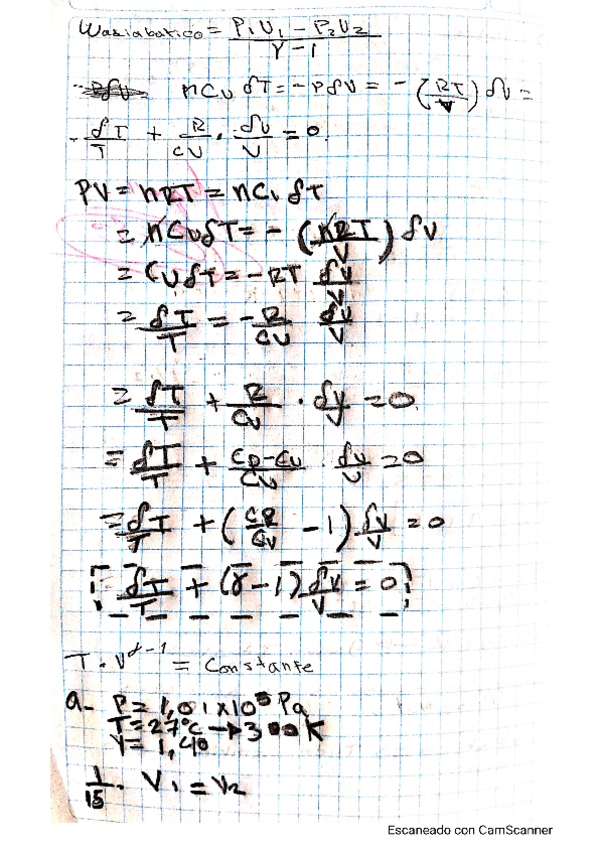 Wadiabatico = P₁V₁ - P₂V₂ / γ-1
nCv dT = - PdV = - (RT/V) dV =
- dT/T + R/CV · dV/V = 0
PV = nRT = nCv dT
= nCvdT = - (nRT/V) dV
= CvdT = -RT dV/V
= dT/T = -R/Cv dV/V
= dT/T + R/Cv · dV/V = 0
= dT/T + Cp-Cv/Cv · dV/V = 0
= dT/T + (Cp/Cv - 1) dV/V = 0
dT/T + (γ-1) dV/V = 0
T · V^γ-1 = Constante
a- P = 1,01x10⁵ Pa
T = 27°C → 300K
γ = 1,40
1/15 · V₁ = V₂
Escaneado con CamScanner